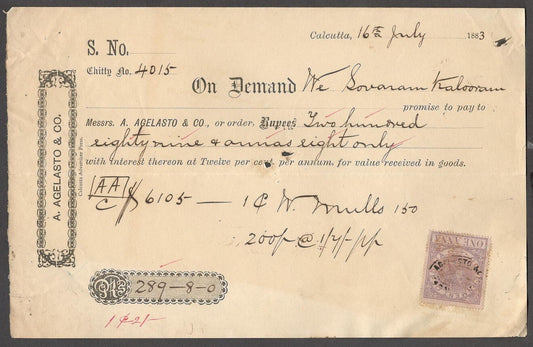 Calcutta, 16th July 1883
S. No.
Chitty No. 4015
On Demand We Sovaram Kalooram
promise to pay to
Messrs. A. AGELASTO & CO., or order, Rupees Two hundred
eighty nine & annas eight only
with interest thereon at Twelve per cent. per annum, for value received in goods.
AA
C 6105 — 1 C W. Mulls 150
200p @ 1/7/- pp
Rs 289-8-0
A. AGELASTO & CO.
Calcutta Advertiser Press.
ONE ANNA